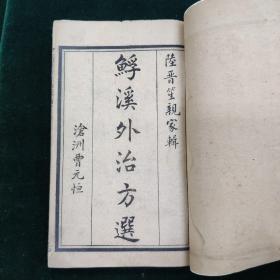 陸晉笙親家輯
鯚溪外治方選
滄洲曹元恒